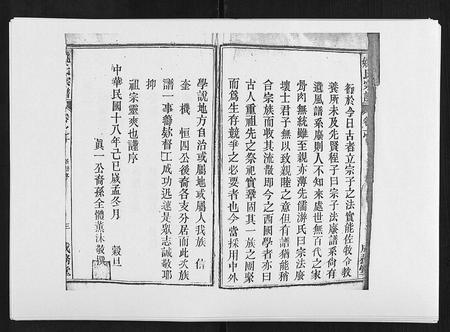 行於今日古者立宗子之法實能佐敎令敎
養所未及先賢程子曰宗子法廢譜系尙有
遺風譜系廢則人不知來處世無百代之家
骨肉無統雖至親亦薄先儒游氏曰宗法廢
壞士君子無以致親睦之意但有譜猶能稍
合宗族而收其流散即今之西國學者亦曰
古人重祖先之祭祀實鞏固其一族之團聚
而爲生存競爭之必要者也今當採用中外
學說地方自治或屬地或屬人我族 信
奎機 恒四公後裔各支分居而此次族
譜一事勷欵督工成功迅速是眾志誠敬耶
抑
祖宗靈爽也謹序
中華民國十八年己巳歲孟冬月 穀旦
眞一公裔孫全體薰沐敬撰